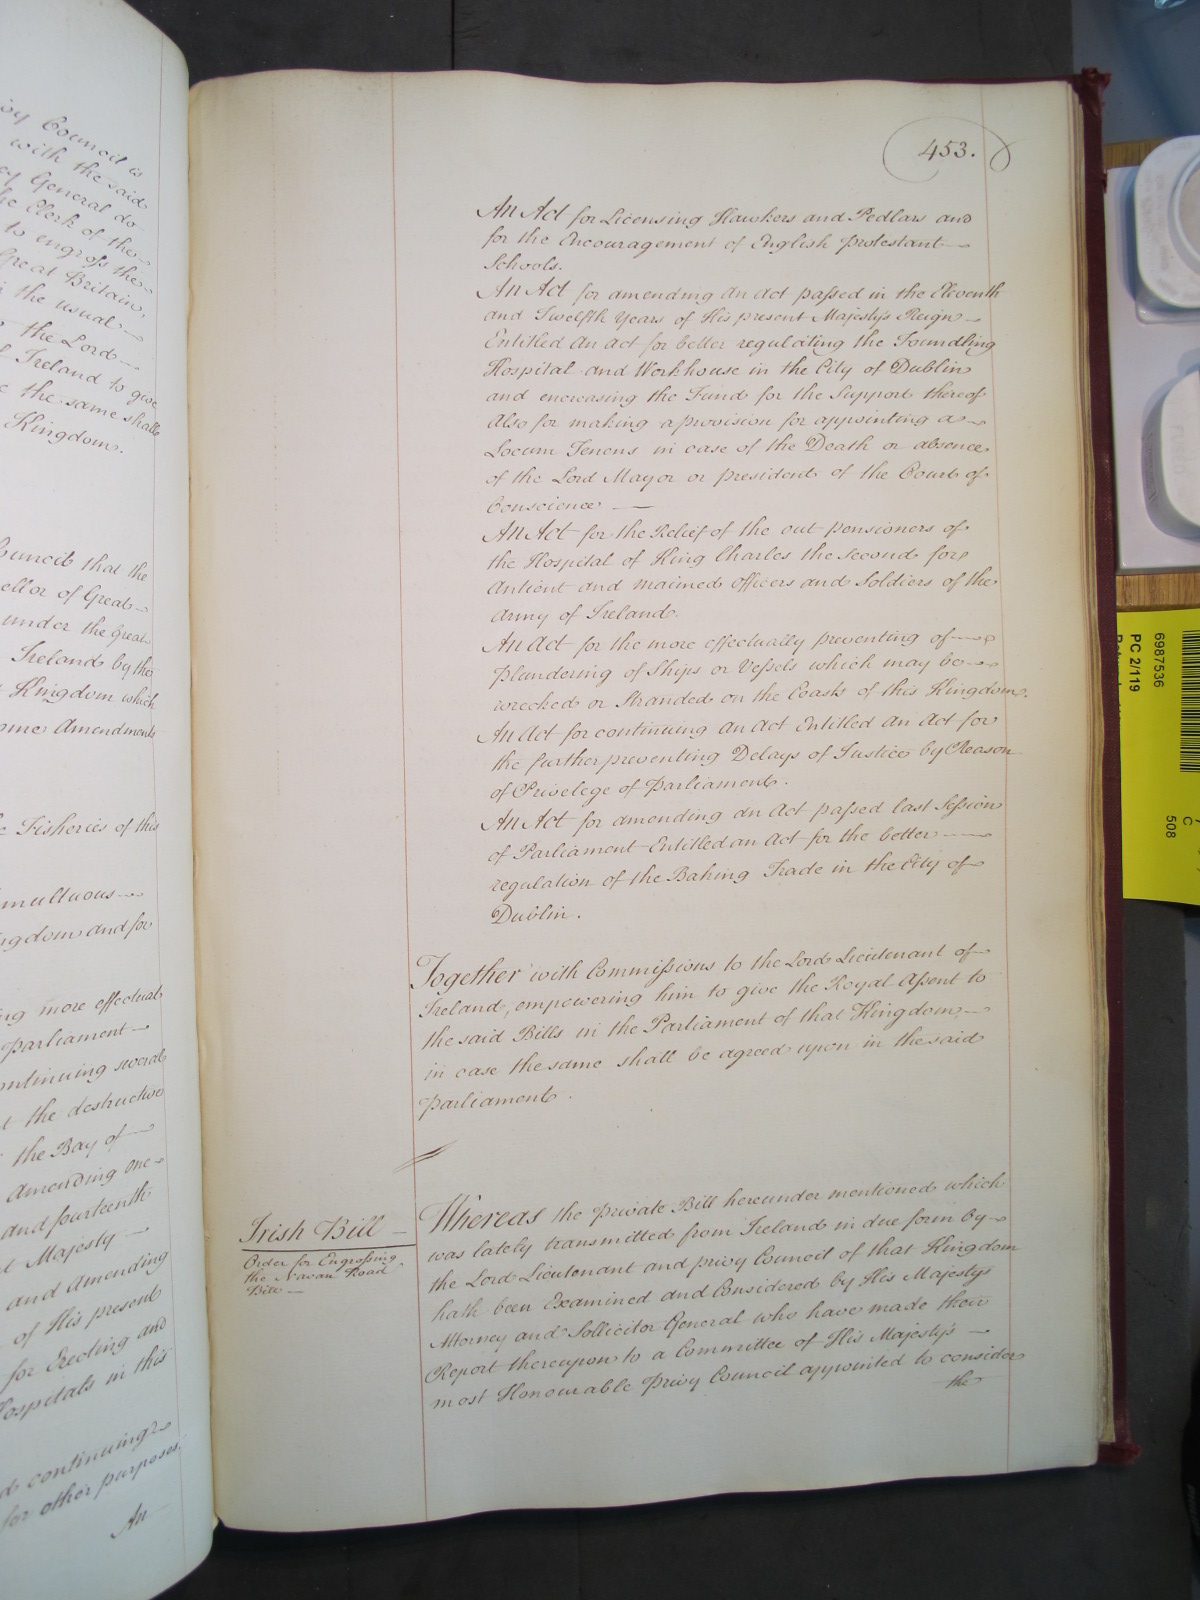 ivy Council is
with the said
ey General do
he Clerk of the
to engross the
Great Britain,
the usual
the Lord
Ireland to give
the same shall
Kingdom.
Council that the
ellor of Great
under the Great
Ireland by the
Kingdom which
ome Amendments
Fisheries of this
multuous
ngdom and for
ng more effectual
Parliament
ontinuing several
the destructive
the Bay of
Amending one
and fourteenth
Majesty
and Amending
of His present
for Erecting and
Hospitals in this
continuing
for other purposes.
An
453.
An Act for Licensing Hawkers and Pedlars and
for the Encouragement of English protestant
Schools.
An Act for amending an Act passed in the Eleventh
and Twelfth Years of His present Majesty's Reign
Entitled An Act for better regulating the Foundling
Hospital and Workhouse in the City of Dublin
and encreasing the Fund for the Support thereof
Also for making a provision for appointing a
Locum Tenens in case of the Death or absence
of the Lord Mayor or president of the Court of
Conscience
An Act for the Relief of the out pensioners of
the Hospital of King Charles the Second for
Antient and maimed officers and Soldiers of the
Army of Ireland.
An Act for the more effectually preventing of
plundering of Ships or Vessels which may be
wrecked or Stranded on the Coasts of this Kingdom.
An Act for continuing An Act Entitled An Act for
the further preventing Delays of Justice by Reason
of Privelege of Parliament.
An Act for amending an Act passed last Session
of Parliament Entitled an Act for the better
regulation of the Baking Trade in the City of
Dublin.
Together with Commissions to the Lord Lieutenant of
Ireland, empowering him to give the Royal Assent to
the said Bills in the Parliament of that Kingdom
in case the same shall be agreed upon in the said
Parliament.
Irish Bill
Order for Engrossing
the Navan Road
Bill
Whereas the private Bill hereunder mentioned which
was lately transmitted from Ireland in due form by
the Lord Lieutenant and privy Council of that Kingdom
hath been Examined and Considered by His Majestys
Attorney and Sollicitor General who have made their
Report thereupon to a Committee of His Majesty's
most Honourable Privy Council appointed to consider
the
6987536
PC 2/119
C
508